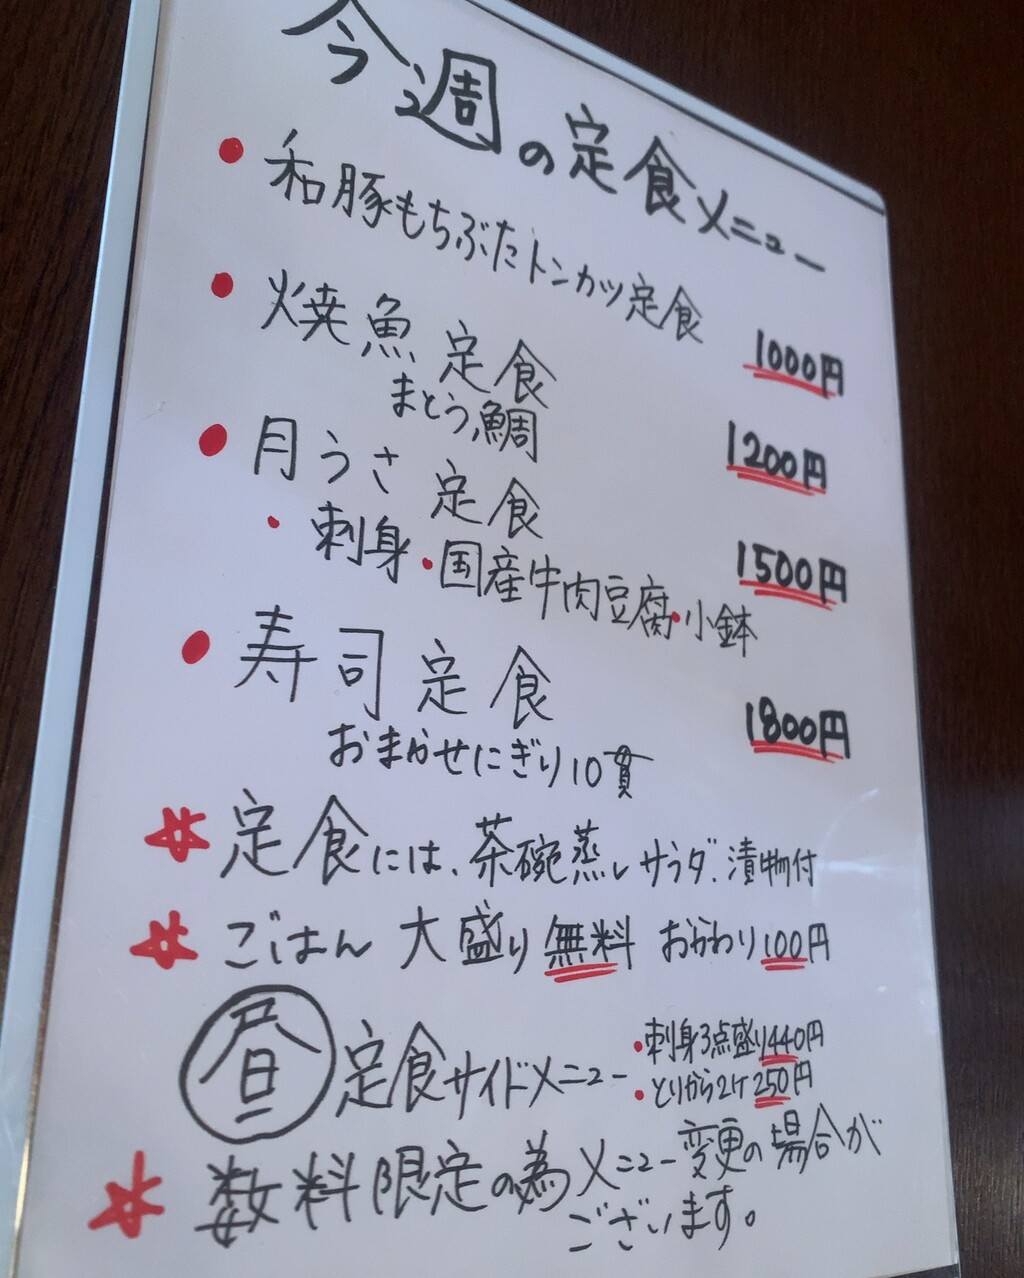 今週の定食メニュー
和豚もちぶたトンカツ定食 1000円
焼魚定食 1200円
まとう鯛
月うさ定食 1500円
・刺身・国産牛肉豆腐・小鉢
寿司定食 1800円
おまかせにぎり10貫
定食には、茶碗蒸しサラダ、漬物付
ごはん 大盛り無料 おかわり100円
昼定食サイドメニュー
・刺身3点盛り440円
・とりから2ケ250円
数料限定の為メニュー変更の場合が
ございます。